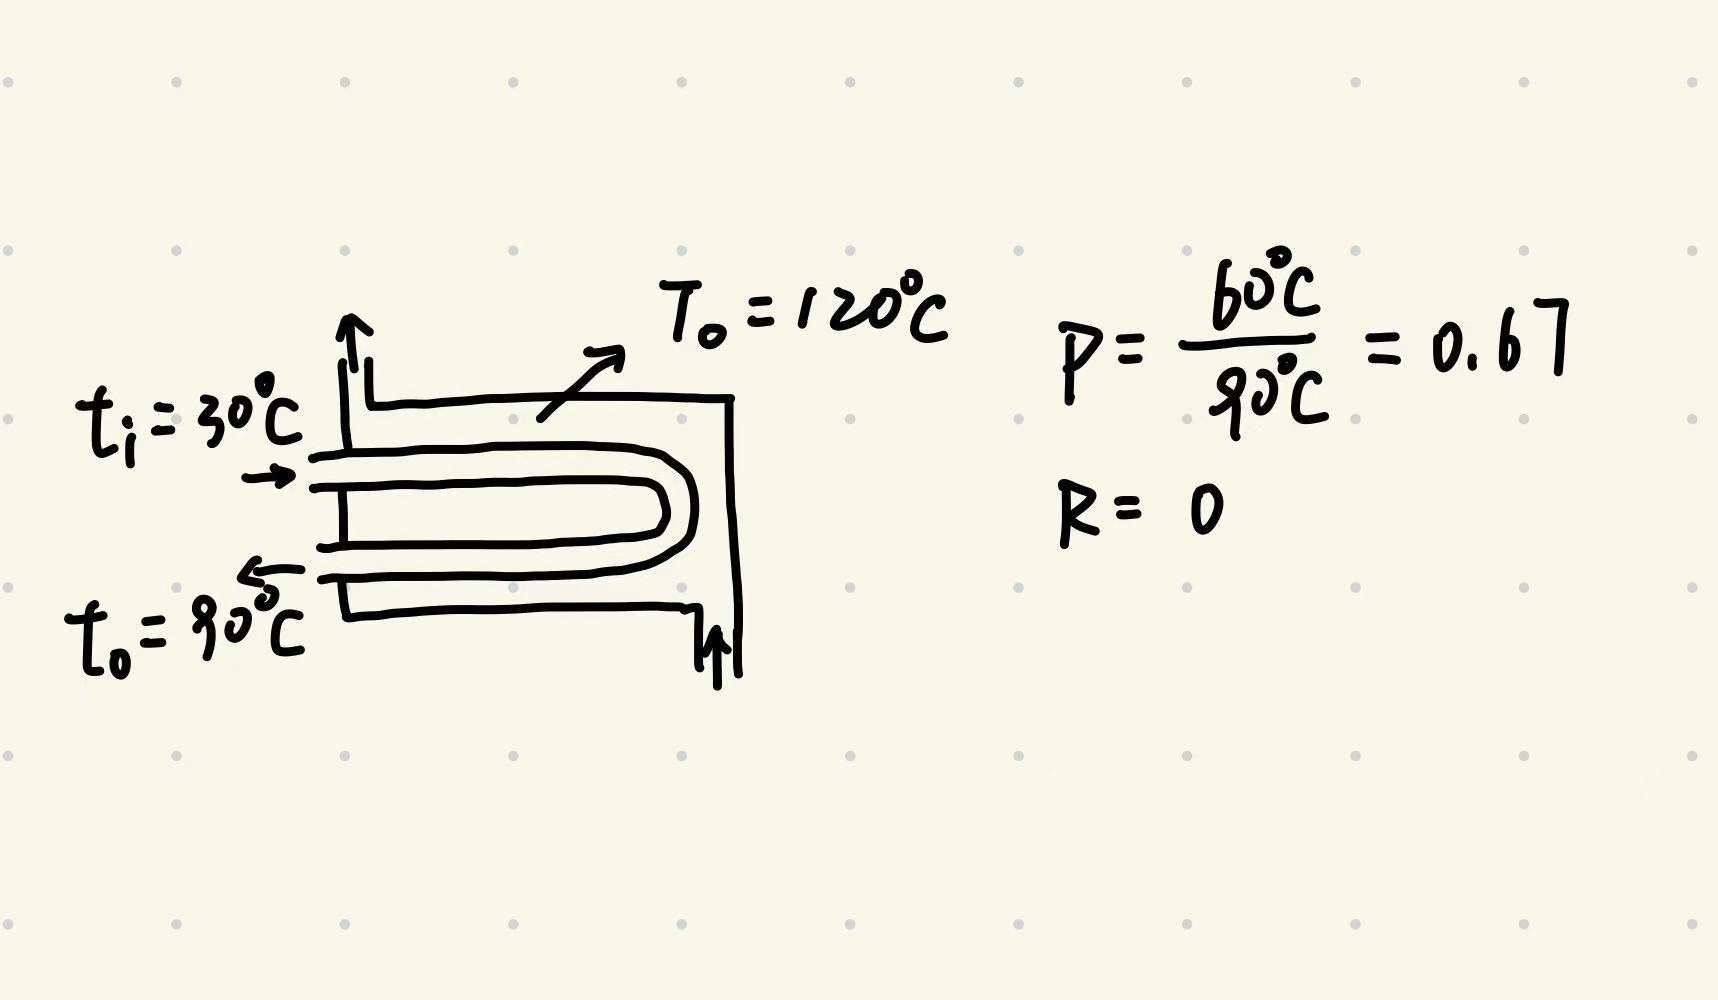 T₀ = 120°C
tᵢ = 30°C
t₀ = 90°C
P = 60°C / 90°C = 0.67
R = 0